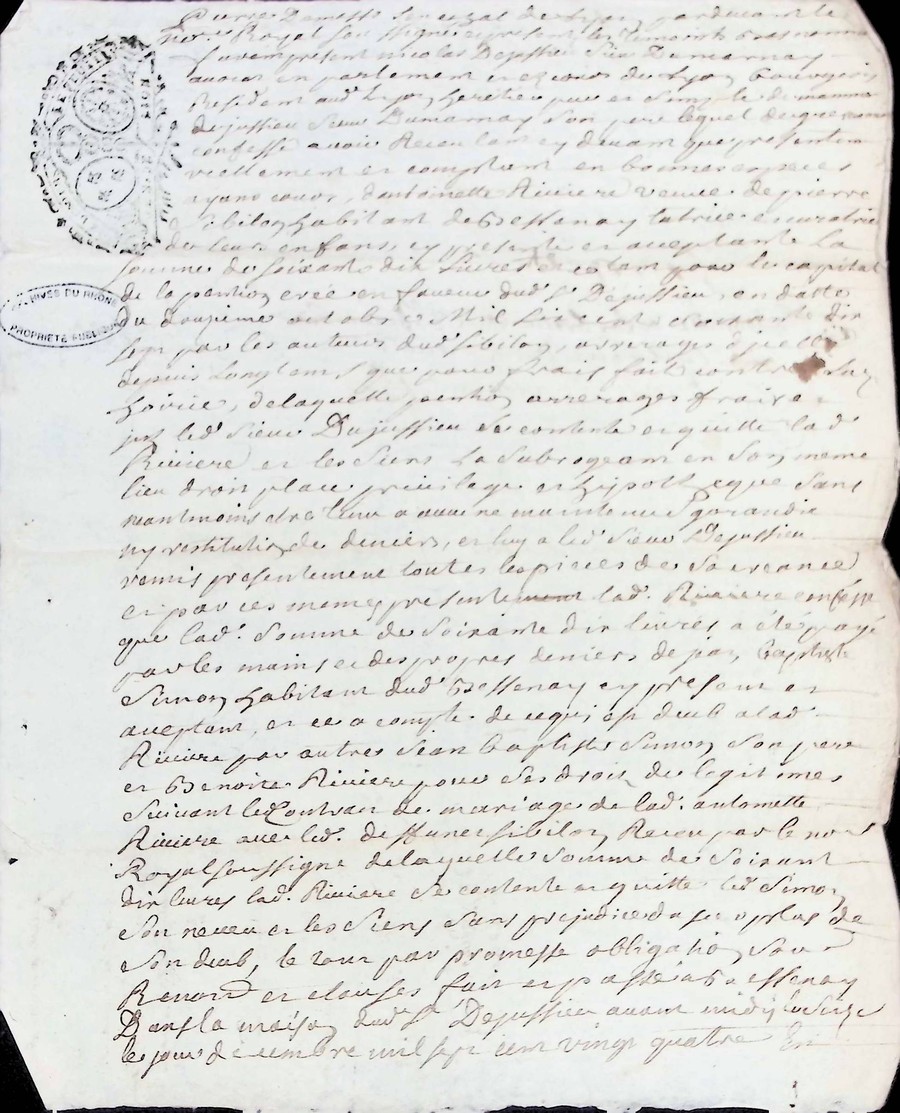 Pierre Damesse Seneczal de Lyon, par devant le
Royal Soussigne et present les temoins bas nommes
fut en present nicolas Dejussieu Sieur Dumarnay
avocat en parlement et es cours de Lyon Bourgeois
Resident aud. Lyon heretier pur et Simple de
dejussieu Sieur Dumarnay Son pere lequel de gre
confesse avoir Receu tant cy devant que presentem
reellement et comptant en bonnes especes
ayant cours, d'antoinette Riviere veuve de pierre
Sibilon habitant de Bessenay tutrice et curatrice
de leurs enfans, cy presente et acceptante La
somme de Soixante dix Livres et ce tant pour le capital
de la pention creé en faveur dud. Sr. Dejussieu, en datte
du douzieme octobre Mil Six cent
Sept par les auteurs dud. Sibilon, arrerages
depuis Longtems que pour frais fait contre Son
hoirie, de laquelle pention arrerages fraix
led. Sieur Dejussieu Se contente et quitte lad.
Riviere et les Siens La Subrogeant en Son meme
lieu droit place privilege et hipotheque Sans
neantmoins etre tenu a aucune maintenue garandie
ny restitution de deniers, et luy a led. Sieur Dejussieu
remis presentement toutes les pieces de
et par ces memes presentes lad. Riviere confesse
que lad. Somme de Soixante dix livres a été payé
par les mains et des propres deniers de jean Baptiste
Simon habitant dud. Bessenay cy present et
acceptant, et ce a compte de ce qui est deub a lad.
Riviere par autres Jean Baptiste Simon Son pere
et Benoite Riviere pour Ses droits de legitimes
Suivant le Contrat de mariage de lad. antoinette
Riviere avec led. deffunct Sibilon Receu par le no.re
Royal Soussigne de laquelle Somme de Soixante
dix livres lad. Riviere Se contente et quitte led. Simon
Son neveu et les Siens Sans prejudice du Surplus de
Son deub, le tout par promesse obligation Sour
Renon.on et clauses fait et passé a Bessenay
Dans la maison dud. Sr. Dejussieu avant midy le
jour decembre mil sept cent vingt quatre En
ARCHIVES DU RHONE
PROPRIETE PUBLIQUE